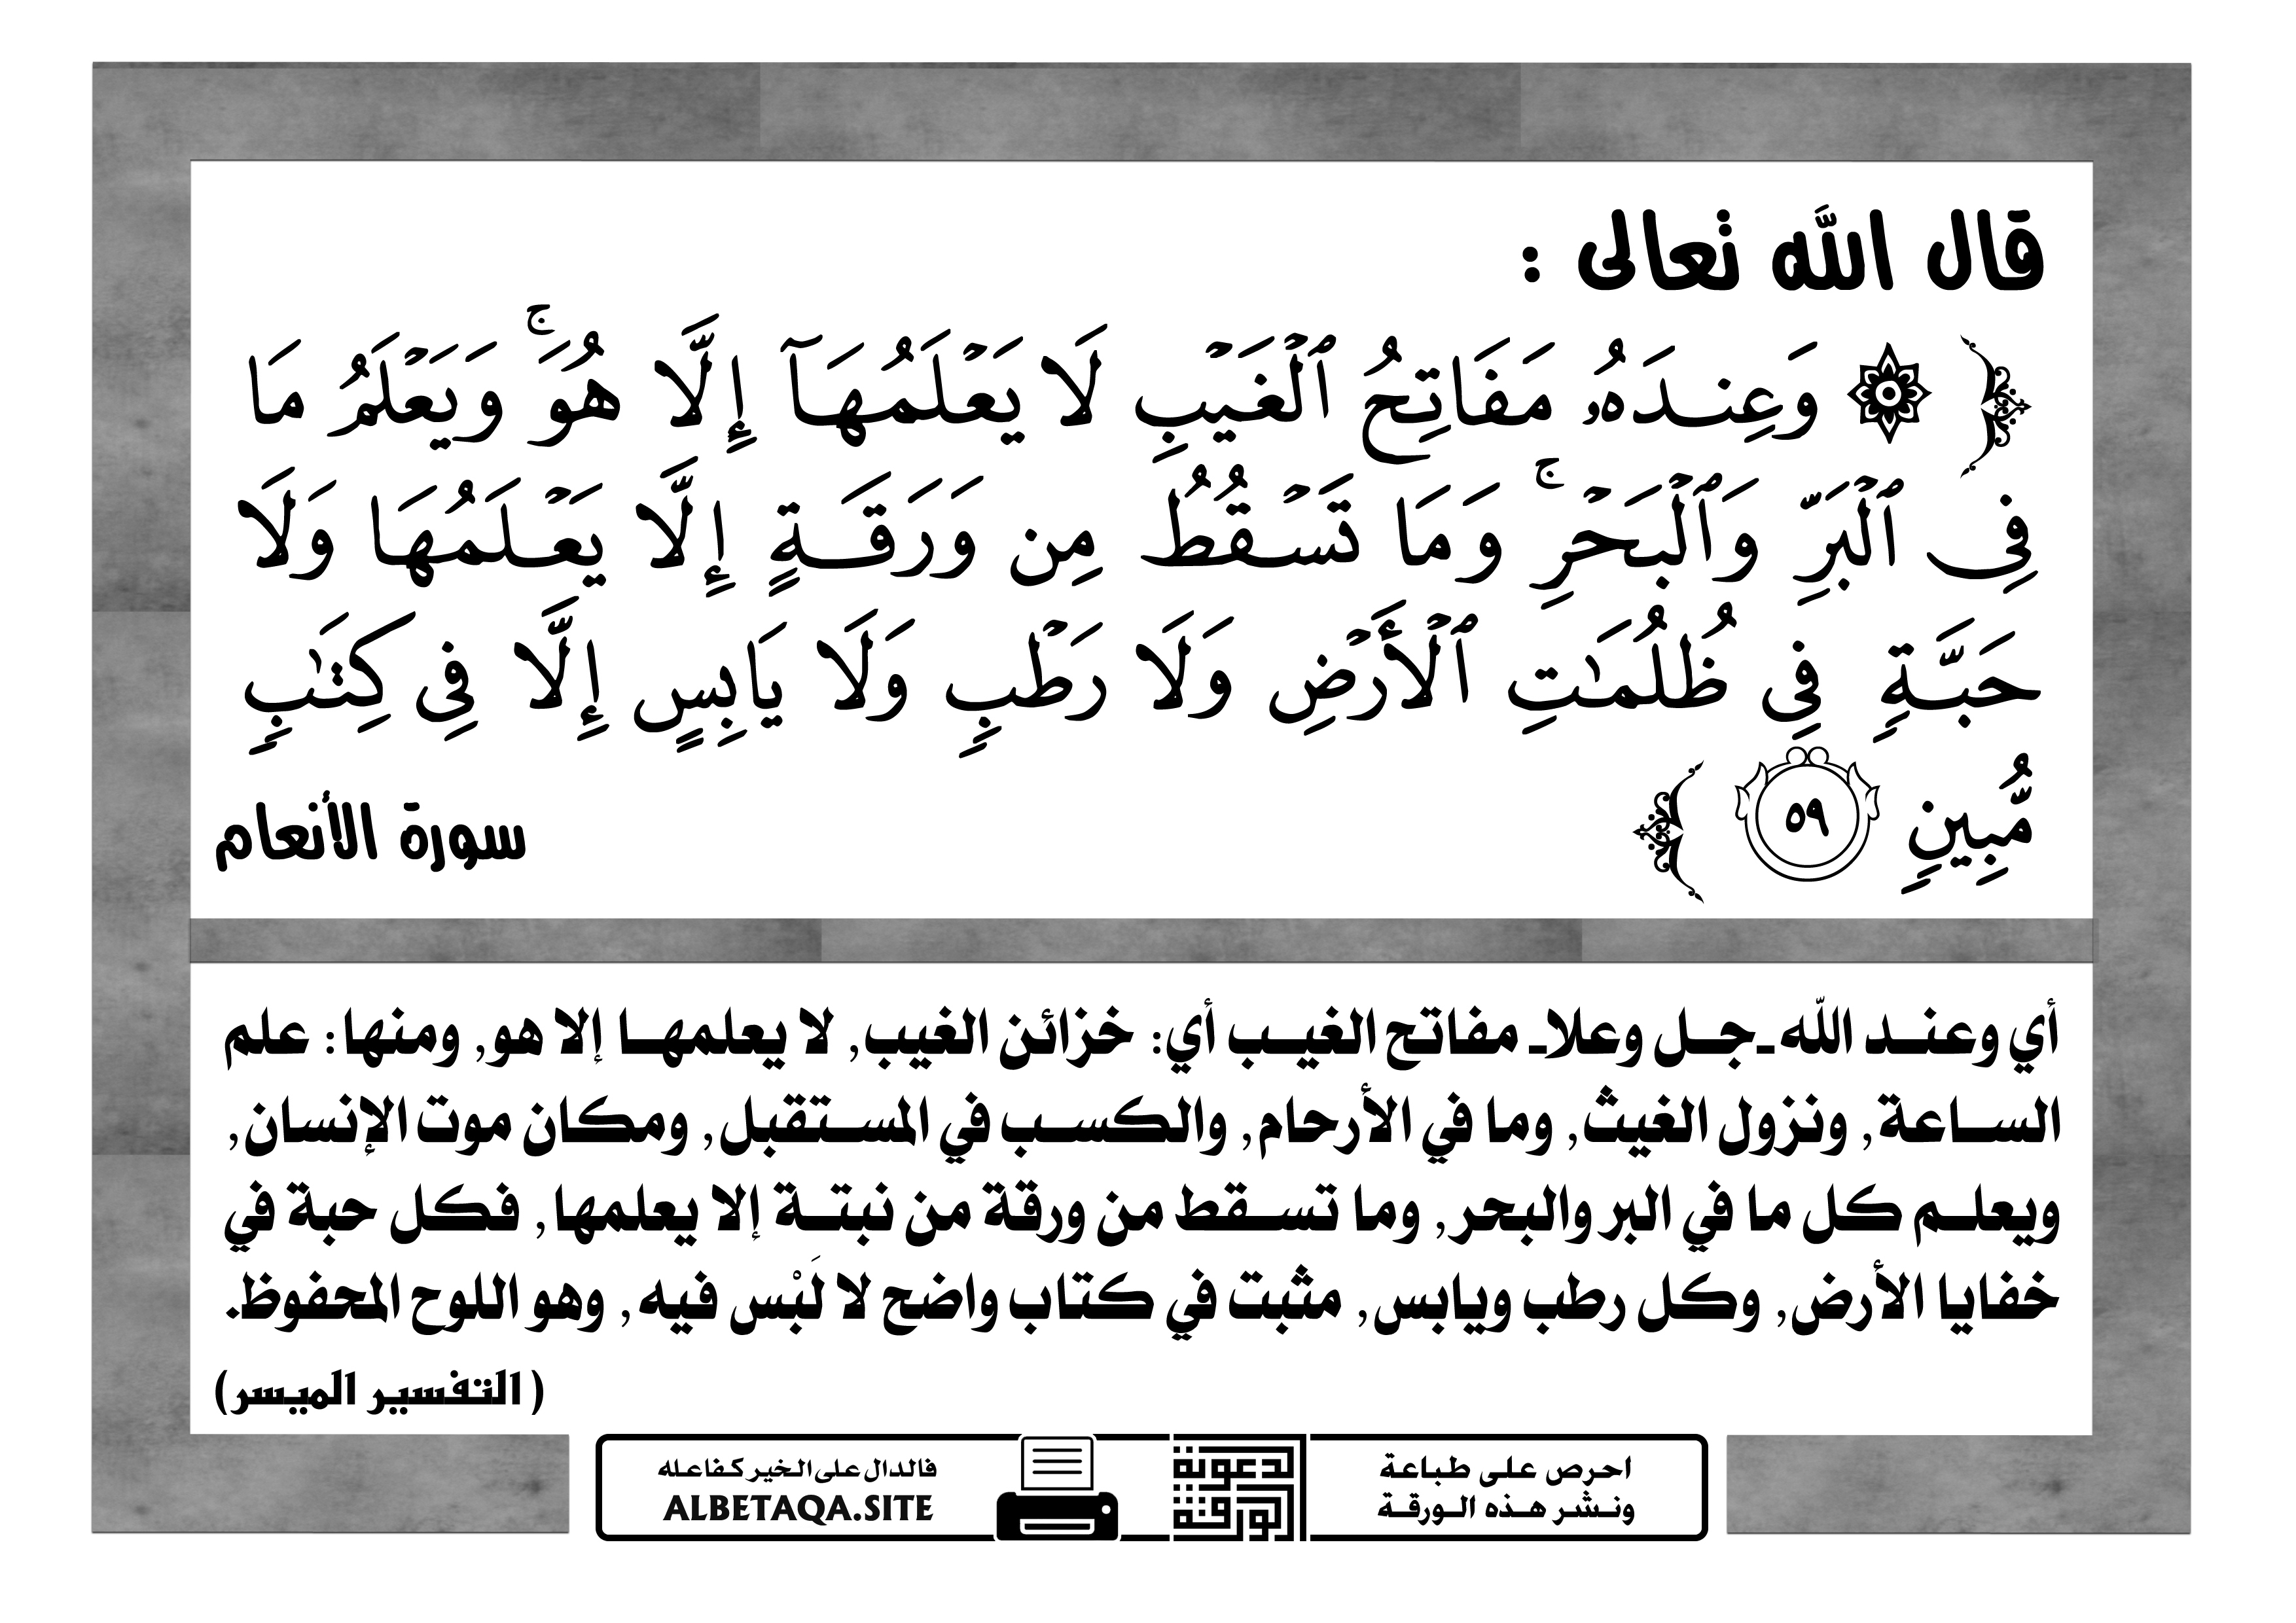 قال الله تعالى :
﴿ ۞ وَعِندَهُۥ مَفَاتِحُ ٱلۡغَيۡبِ لَا يَعۡلَمُهَآ إِلَّا هُوَۚ وَيَعۡلَمُ مَا
فِي ٱلۡبَرِّ وَٱلۡبَحۡرِۚ وَمَا تَسۡقُطُ مِن وَرَقَةٍ إِلَّا يَعۡلَمُهَا وَلَا
حَبَّةٖ فِي ظُلُمَٰتِ ٱلۡأَرۡضِ وَلَا رَطۡبٖ وَلَا يَابِسٍ إِلَّا فِي كِتَٰبٖ
مُّبِينٖ ٥٩ ﴾
سورة الأنعام
أي وعند الله ـجل وعلاـ مفاتح الغيب أي: خزائن الغيب, لا يعلمها إلا هو, ومنها: علم
الساعة, ونزول الغيث, وما في الأرحام, والكسب في المستقبل, ومكان موت الإنسان,
ويعلم كل ما في البر والبحر, وما تسقط من ورقة من نبتة إلا يعلمها, فكل حبة في
خفايا الأرض, وكل رطب ويابس, مثبت في كتاب واضح لا لَبْس فيه, وهو اللوح المحفوظ.
( التفسير الميسر)
احرص على طباعة
ونشر هذه الورقة
الدعوية
الورقة
فالدال على الخير كفاعله
ALBETAQA.SITE